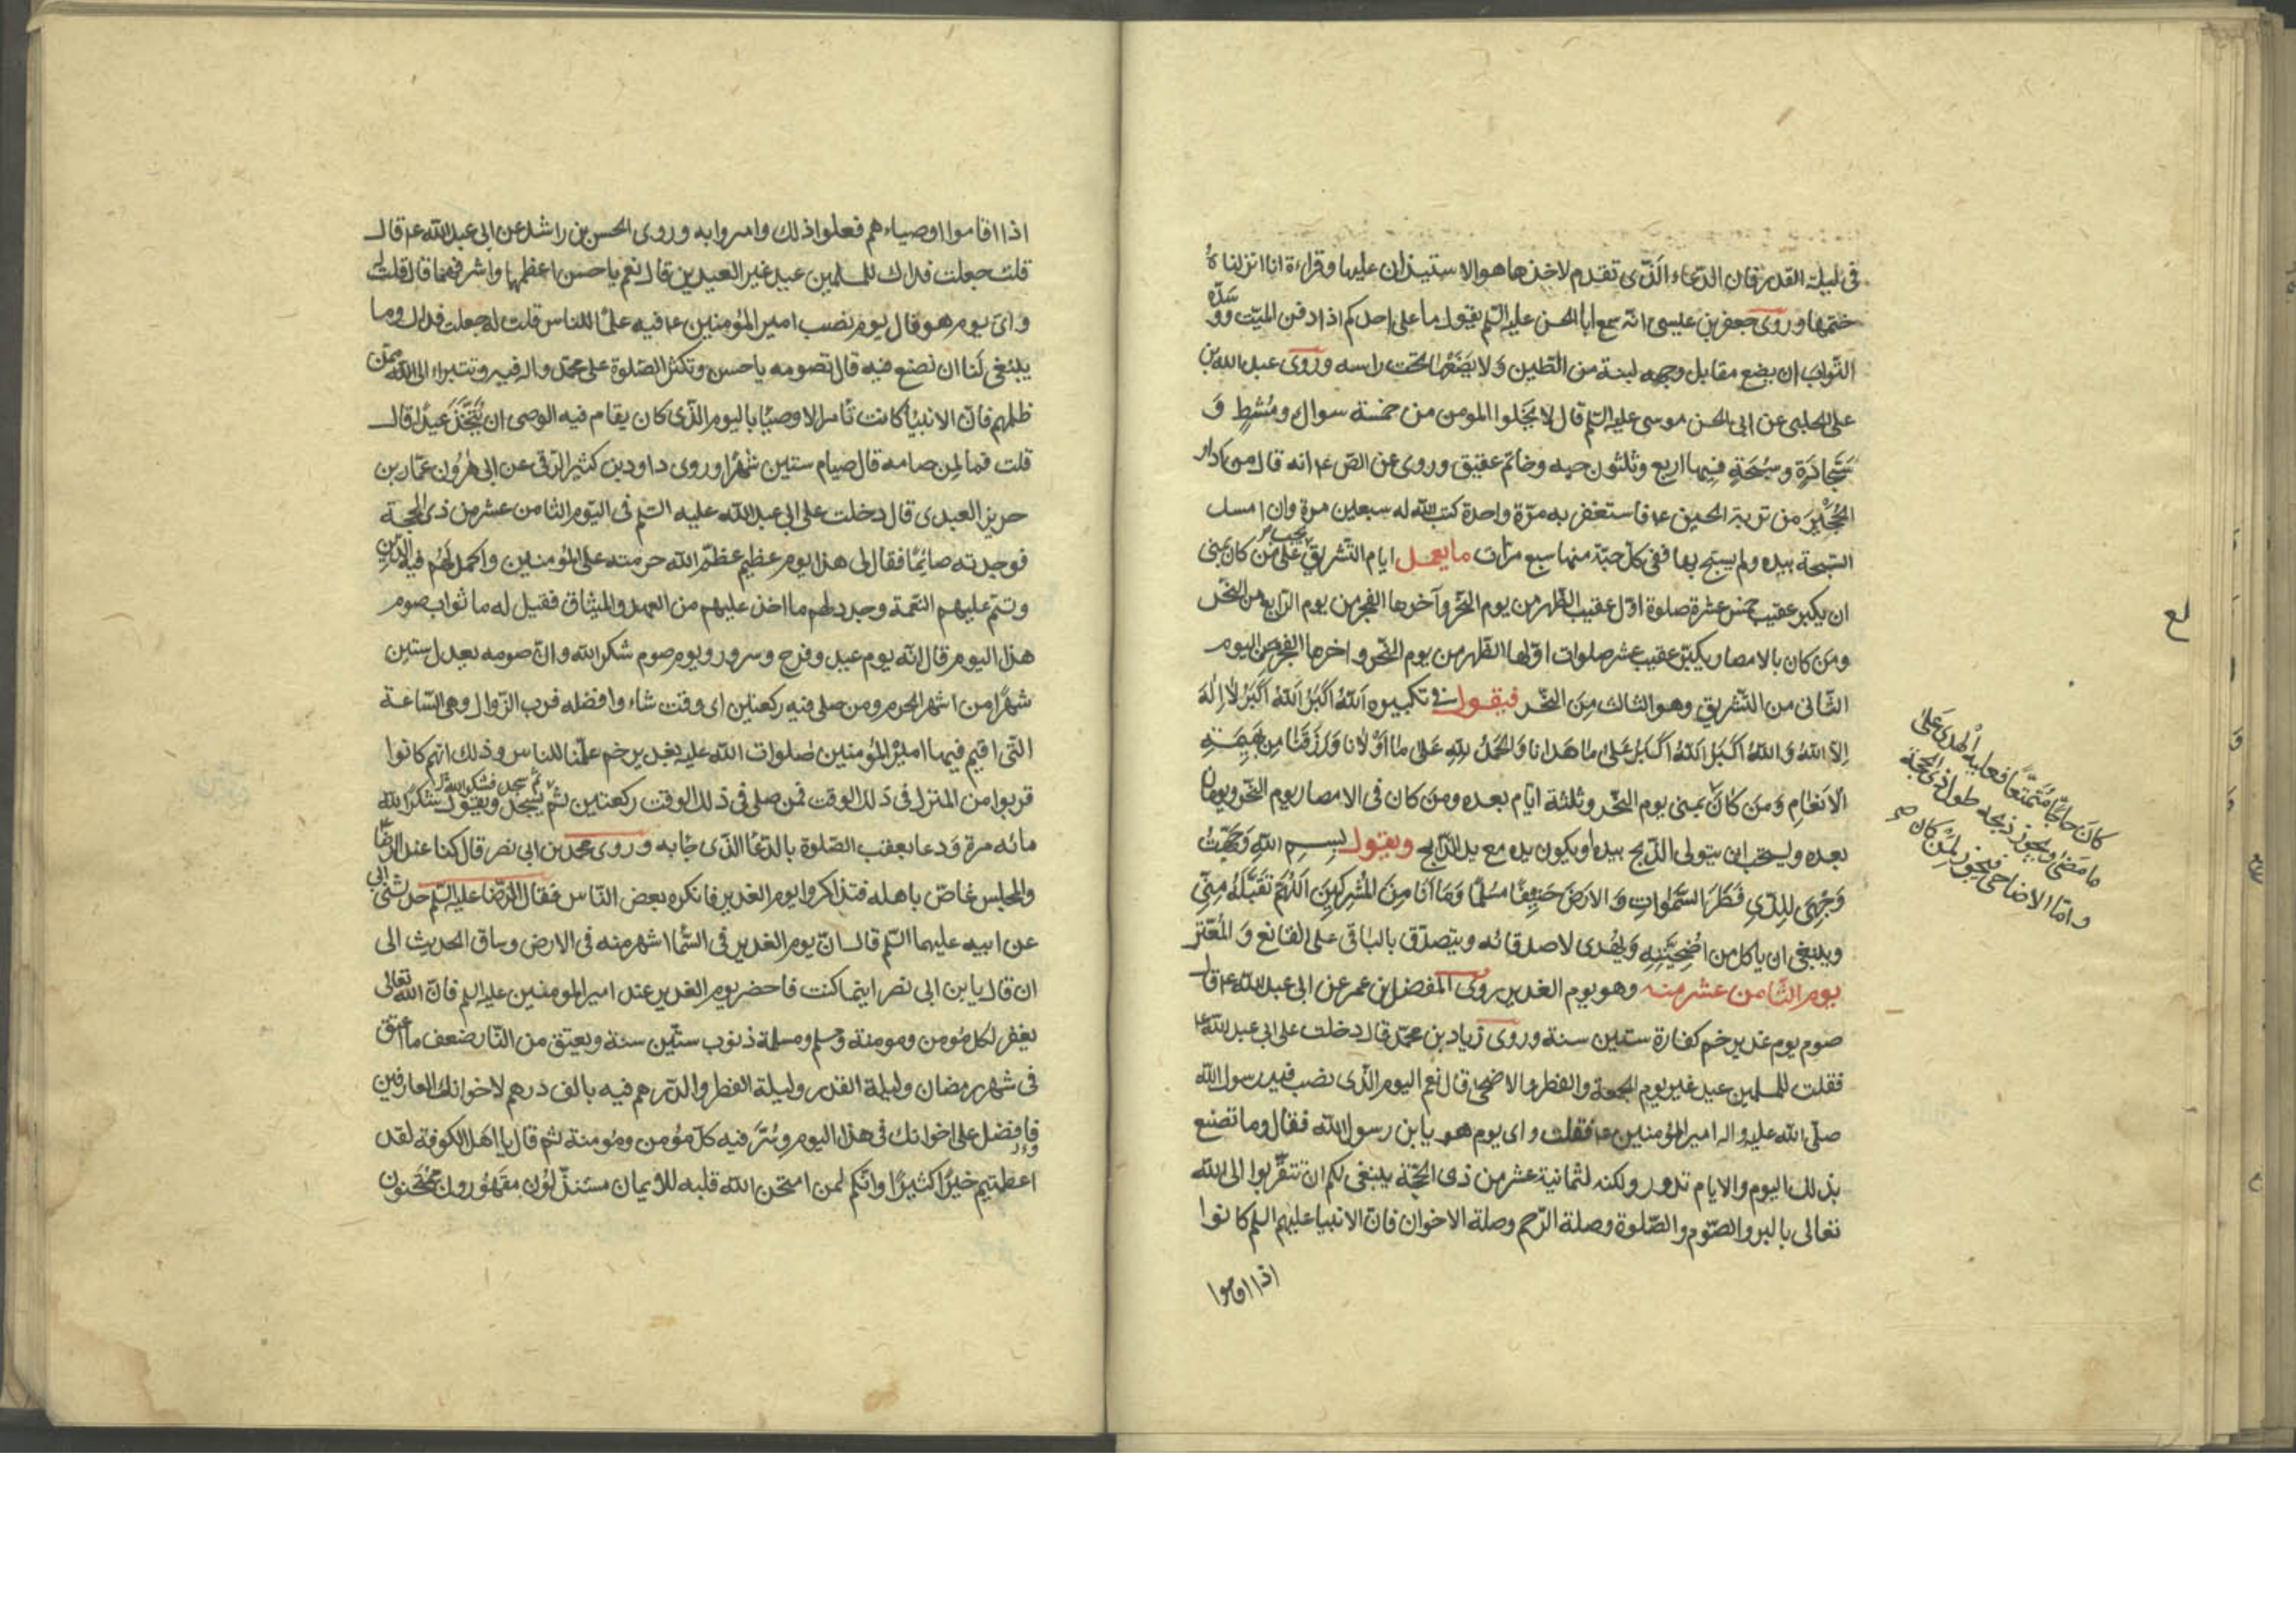 في ليلة القدر فان الدعاء الذي تقدم لاخذها هو الاستيذان عليها وقراءة انا انزلناه
ختمها وروى جعفر بن عيسى انه سمع ابا الحسن عليه السلم يقول ما على احدكم اذا دفن الميت ووسده
التراب ان يضع مقابل وجهه لبنة من الطين ولا يضعها تحت راسه وروى عبد الله بن
على الحلبي عن ابي الحسن موسى عليه السلم قال لا يخلوا المومن من خمسة سواك ومشط و
سجادة وسبحة فيها اربع وثلثون حبه وخاتم عقيق وروى عن الص ع انه قال من ادار
الحجير من تربة الحسين ع فاستغفر به مرة واحدة كتب الله له سبعين مرة وان امسك
السبحة بيده ولم يسبح بها ففي كل حبة منها سبع مرات ما يعمل ايام التشريق يجب على من كان بمنى
ان يكبر عقيب خمس عشرة صلوة اول عقيب الظهر من يوم النحر وآخرها الفجر من يوم الرابع من النحر
ومن كان بالامصار يكبر عقيب عشر صلوات اولها الظهر من يوم النحر واخرها الفجر من اليوم
الثاني من التشريق وهو الثالث من النحر فيقول في تكبيره الله اكبر الله اكبر لا اله
الا الله والله اكبر الله اكبر على ما هدانا والحمد لله على ما اولانا ورزقنا من بهيمة
الانعام ومن كان بمنى يوم النحر وثلثة ايام بعده ومن كان في الامصار يوم النحر ويومان
بعده ويستحب ان يتولى الذبح بيده او يكون يده مع يد الذابح ويقول بسم الله وجهت
وجهي للذي فطر السموات والارض حنيفا مسلما وما انا من المشركين اللهم تقبله مني
وينبغي ان ياكل من اضحيته ويهدى لاصدقائه ويتصدق بالباقي على القانع والمعتر
يوم الثامن عشر منه وهو يوم الغدير روى المفضل بن عمر عن ابي عبد الله ع قال
صوم يوم غدير خم كفارة ستين سنة وروى زياد بن محمد قال دخلت على ابي عبد الله ع
فقلت للمسلمين عيد غير يوم الجمعة والفطر والاضحى قال نعم اليوم الذي نصب فيه رسول الله
صلى الله عليه واله امير المؤمنين ع فقلت واي يوم هو يا بن رسول الله فقال وما تصنع
بذلك اليوم والايام تدور ولكنه لثمانية عشر من ذي الحجة ينبغي لكم ان تتقربوا الى الله
تعالى بالبر والصوم والصلوة وصلة الرحم وصلة الاخوان فان الانبيا عليهم السلم كانوا
اذا اقاموا
كان حاجا متمتعا فعليه الهدى على
ما مضى ويجوز ذبحه طول ذي الحجة
واما الاضاحي فيجوز لمن كان صح
اذا اقاموا اوصياءهم فعلوا ذلك وامروا به وروى الحسن بن راشد عن ابي عبد الله ع قال
قلت جعلت فداك للمسلمين عيد غير العيدين قال نعم يا حسن اعظمها واشرفهما قال قلت له
واي يوم هو قال يوم نصب امير المؤمنين ع فيه علما للناس قلت له جعلت فداك وما
ينبغي لنا ان نصنع فيه قال تصومه يا حسن وتكثر الصلوة على محمد واله فيه وتتبراء الى الله ممن
ظلمهم فان الانبيا كانت تامر الاوصيا باليوم الذي كان يقام فيه الوصى ان يتخذ عيدا قال
قلت فما لمن صامه قال صيام ستين شهرا وروى داود بن كثير الرقى عن ابي هرون عمار بن
حريز العبدى قال دخلت على ابي عبد الله عليه السلم في اليوم الثامن عشر من ذي الحجة
فوجدته صائما فقال لي هذا يوم عظيم عظم الله حرمته على المؤمنين واكمل لهم فيه الدين
وتتم عليهم النعمة وجدد لهم ما اخذ عليهم من العهد والميثاق فقيل له ما ثواب صوم
هذا اليوم قال انه يوم عيد وفرح وسرور ويوم صوم شكر الله وان صومه يعدل ستين
شهرا من اشهر الحرم ومن صلى فيه ركعتين اى وقت شاء وافضله قرب الزوال وهي الساعة
التي اقيم فيها امير المؤمنين صلوات الله عليه بغدير خم علما للناس وذلك انهم كانوا
قربوا من المنزل في ذلك الوقت فمن صلى في ذلك الوقت ركعتين ثم يسجد ويقول شكرا لله
مائه مرة ودعا بعقب الصلوة بالدعا الذي جا به وروى محمد بن ابي نصر قال كنا عند الرضا
والمجلس غاص باهله فتذاكروا يوم الغدير فانكره بعض الناس فقال الرضا عليه السلم حدثني ابي
عن ابيه عليهما السلم قال ان يوم الغدير في السما اشهر منه في الارض وساق الحديث الى
ان قال يا بن ابي نصر اينما كنت فاحضر يوم الغدير عند امير المومنين عليه السلم فان الله تعالى
يغفر لكل مومن ومومنة ومسلم ومسلمة ذنوب ستين سنة ويعتق من النار ضعف ما اعتق
في شهر رمضان وليلة القدر وليلة الفطر والدرهم فيه بالف درهم لاخوانك العارفين
فافضل على اخوانك في هذا اليوم وسر فيه كل مؤمن ومؤمنة ثم قال يا اهل الكوفة لقد
اعطيتم خيرا كثيرا وانكم لمن امتحن الله قلبه للايمان مستذلون مقهورون ممتحنون